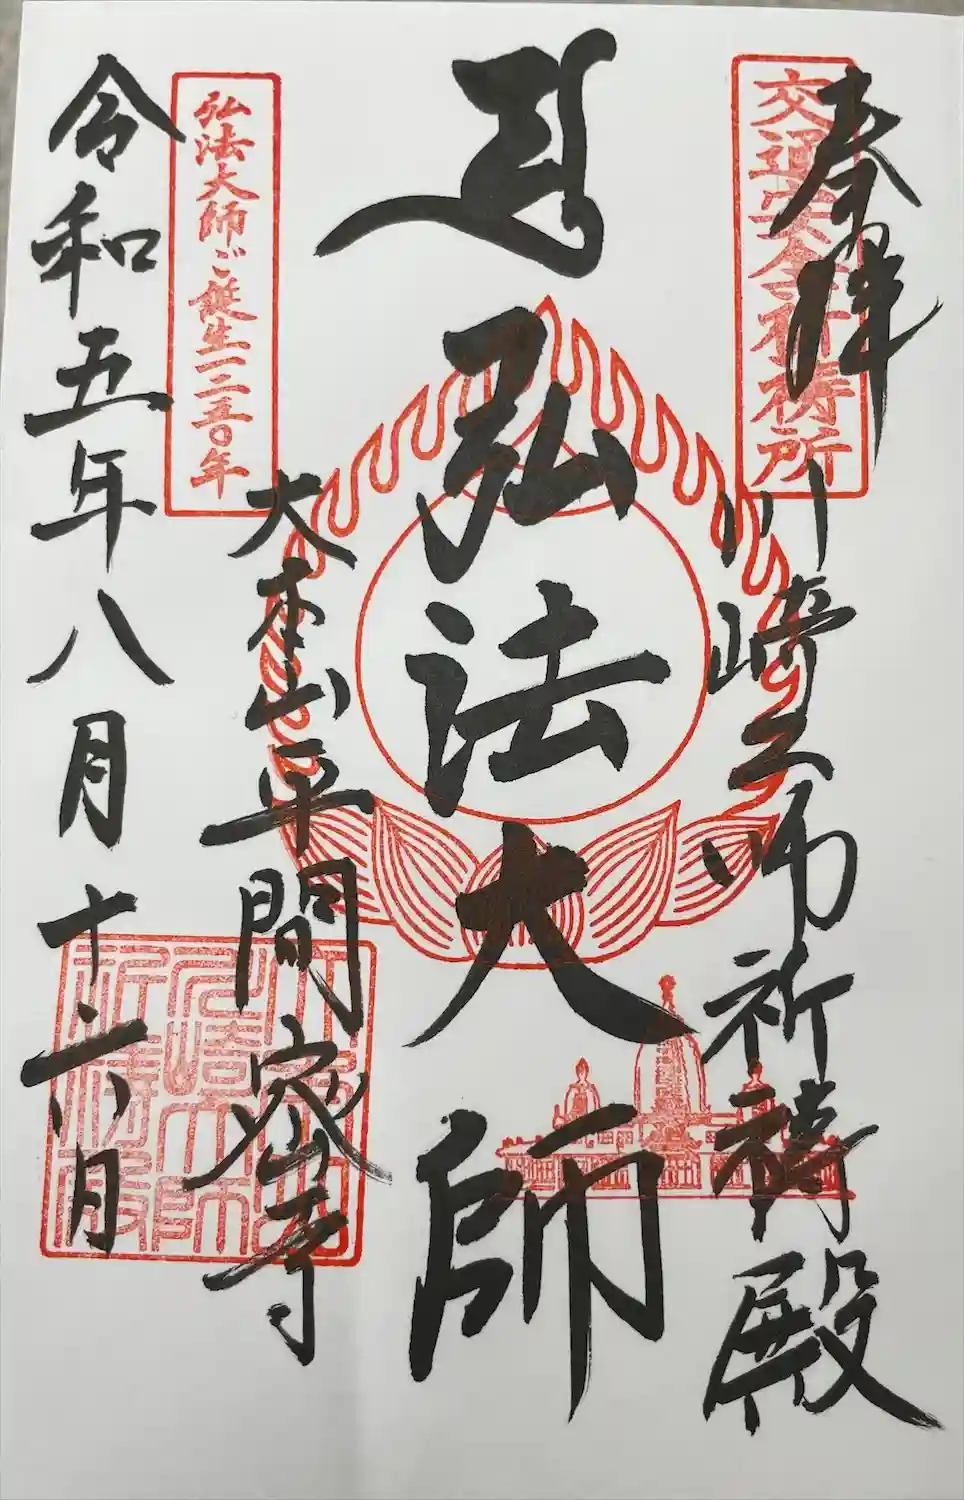 奉拝
交通安全祈祷所
川崎大師祈禱殿
弘法大師
大本山平間
寺
弘法大師ご誕生一二五〇年
令和五年八月十六日